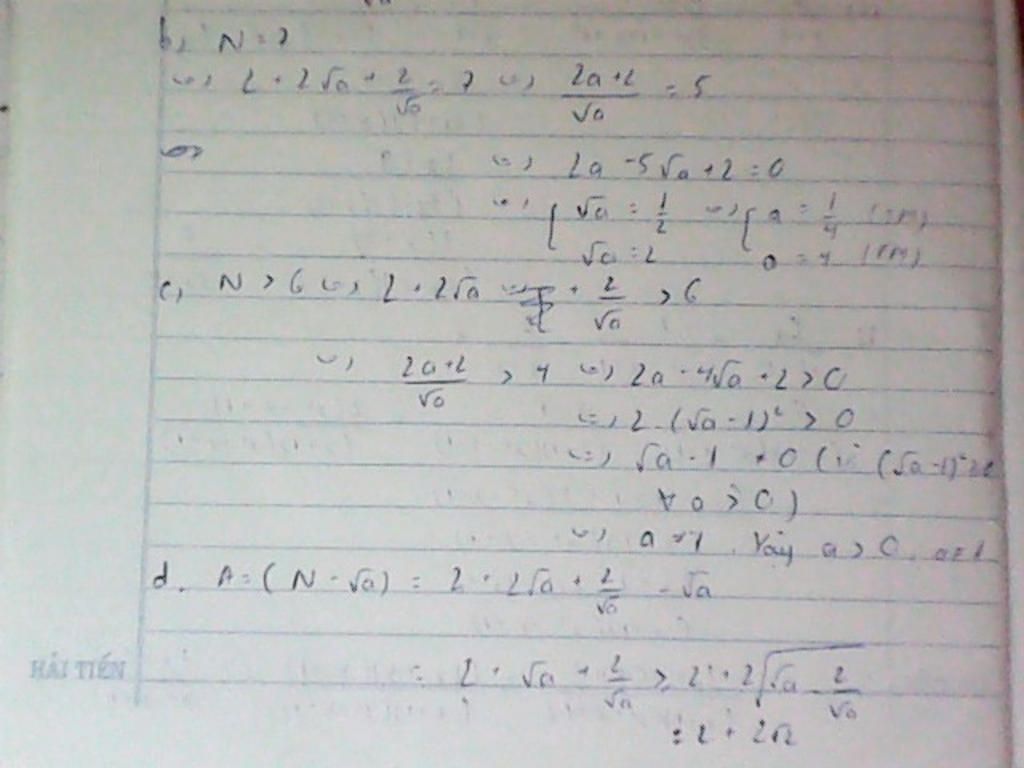 b, N = 7
<=> 2 + 2√a + 2/√a = 7 <=> (2a+2)/√a = 5
<=> 2a - 5√a + 2 = 0
<=> [ √a = 1/2 <=> [ a = 1/4 (TM)
√a = 2 a = 4 (TM)
c, N > 6 <=> 2 + 2√a + 2/√a > 6
<=> (2a+2)/√a > 4 <=> 2a - 4√a + 2 > 0
<=> 2.(√a - 1)² > 0
<=> √a - 1 ≠ 0 (vì (√a - 1)² ≥ 0
∀ a > 0)
<=> a ≠ 1. Vậy a > 0, a ≠ 1
d. A = (N - √a) = 2 + 2√a + 2/√a - √a
HẢI TIẾN
= 2 + √a + 2/√a ≥ 2 + 2√(√a . 2/√a)
= 2 + 2√2